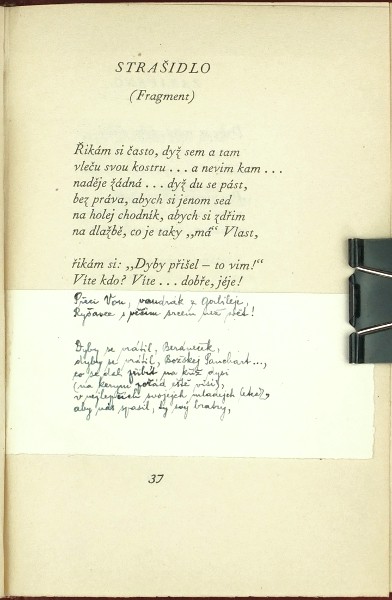 STRAŠIDLO
(Fragment)
Řikám si často, dyž sem a tam
vleču svou kostru . . . a nevim kam . . .
naděje žádná . . . dyž du se pást,
bez práva, abych si jenom sed
na holej chodník, abych si zdřím
na dlažbě, co je taky „má“ Vlast,
řikám si: „Dyby přišel – to vim!“
Víte kdo? Víte . . . dobře, jéje!
Přeci Von, vandrák z Galileje,
s věčím srcem než svět!
Dyby se vrátil, Beráneček,
dyby se vrátil, Božskej
co se dal přibít na kříž dysi
(na kerym pořád eště visí),
v nejlepších svojejch mladejch letech,
aby nás spasil, ty svý
37